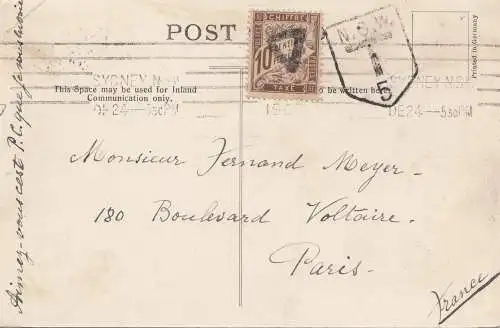 POST
CHIFFRE
10
TAXE
N.S.W.
T
15
Printed in Germany
SYDNEY N.S.W
DE 24 - 530PM
SYDNEY N.S.W
DE 24 - 530PM
This Space may be used for Inland
Communication only.
to be written here.
Aimez-vous cest P.C. que je vous
Monsieur Fernand Meyer -
180 Boulevard Voltaire.
Paris -
France